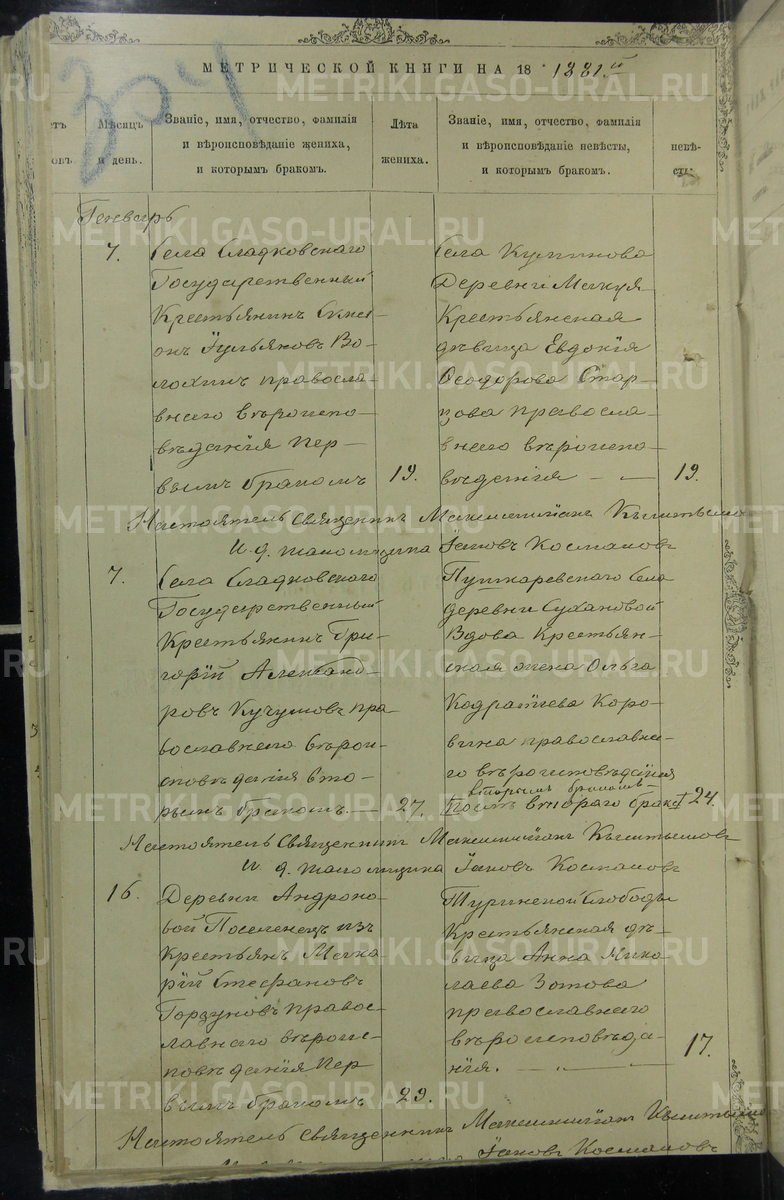 304
МЕТРИЧЕСКОЙ КНИГИ НА 18 1881й
Мѣсяцъ и день.
Званіе, имя, отчество, фамилія и вѣроисповѣданіе жениха, и которымъ бракомъ.
Лѣта жениха.
Званіе, имя, отчество, фамилія и вѣроисповѣданіе невѣсты, и которымъ бракомъ.
невѣ-
сты
Генварь
7.
Села Сладковскаго
Государственный
Крестьянинъ Симе
онъ Іульяновъ Во-
лохинъ правосла-
внаго вѣроиспо-
вѣданія пер-
вымъ бракомъ
19.
Села Куминова
Деревни Макуя
Крестьянская
дѣвица Евдокія
Ѳеодорова Стар-
цова правосла-
внаго вѣроиспо-
вѣданія
19.
Настоятель Священникъ Максимиліанъ
И. д. псаломщика Іаковъ Космаковъ
7.
Села Сладковскаго
Государственный
Крестьянинъ Гри-
горій Александ-
ровъ Кучумовъ пра
вославнаго вѣрои-
сповѣданія вто-
рымъ бракомъ.
27.
Пушкаревскаго Села
деревни Сухановой
Вдова Крестьян-
ская жена Ольга
Кодратіева Коро-
вина православна-
го вѣроисповѣданія
вторымъ бракомъ
Послѣ втораго брака
24.
Настоятель Священникъ Максимиліанъ
И. д. псаломщика Іаковъ Космаковъ
16.
Деревни Андроно-
вой Поселенецъ изъ
Крестьянъ Мака
рій Стефановъ
Горзуновъ правос-
лавнаго вѣроис-
повѣданія пер
вымъ бракомъ
29.
Туринской Слободы
Крестьянская дѣ-
вица Анна Нико
лаева Зотова
православнаго
вѣроисповѣда-
нія.
17.
Настоятель Священникъ Максимиліанъ
Іаковъ Космаковъ
METRIKI.GASO-URAL.RU